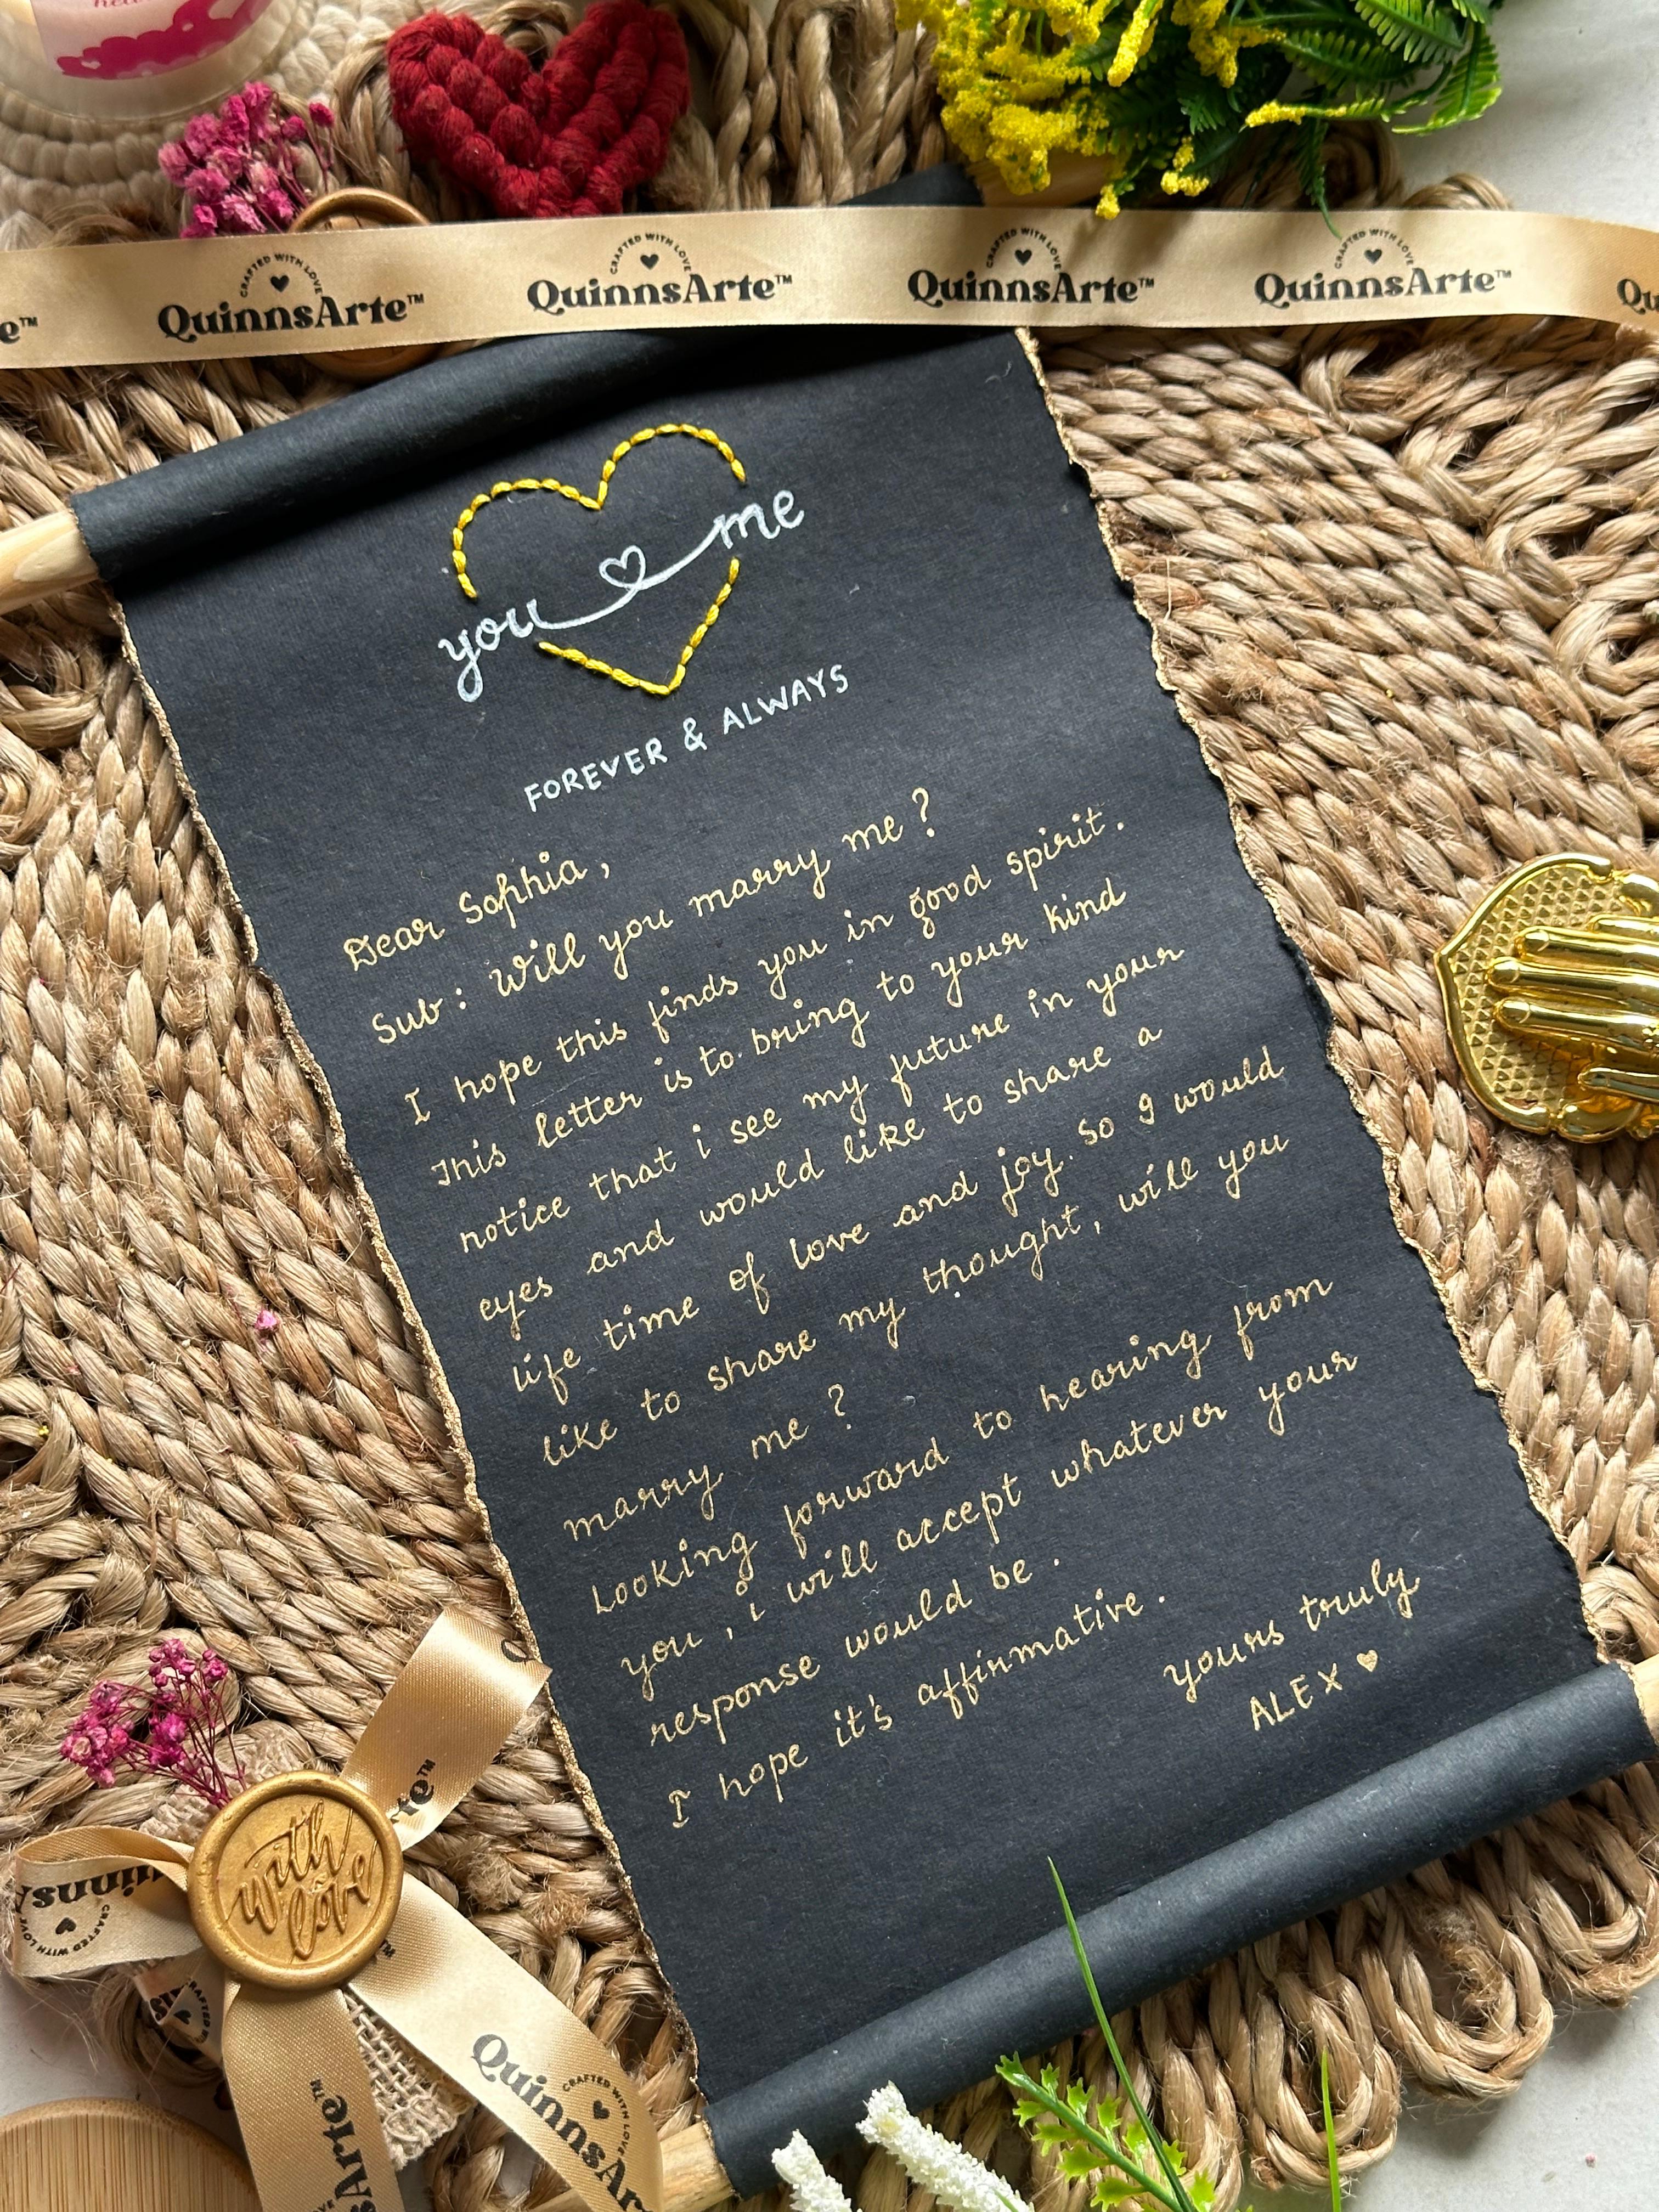 CRAFTED WITH LOVE
QuinnsArte™
CRAFTED WITH LOVE
QuinnsArte™
CRAFTED WITH LOVE
QuinnsArte™
CRAFTED WITH LOVE
QuinnsArte™
you me
FOREVER & ALWAYS
Dear Sophia,
Sub: Will you marry me?
I hope this finds you in good spirit.
This letter is to bring to your kind
notice that i see my future in your
eyes and would like to share a
life time of love and joy. So I would
like to share my thought, will you
marry me?
Looking forward to hearing from
you, i will accept whatever your
response would be.
I hope it's affirmative.
yours truly
ALEX ♥
with
love
CRAFTED WITH LOVE
CRAFTED WITH LOVE